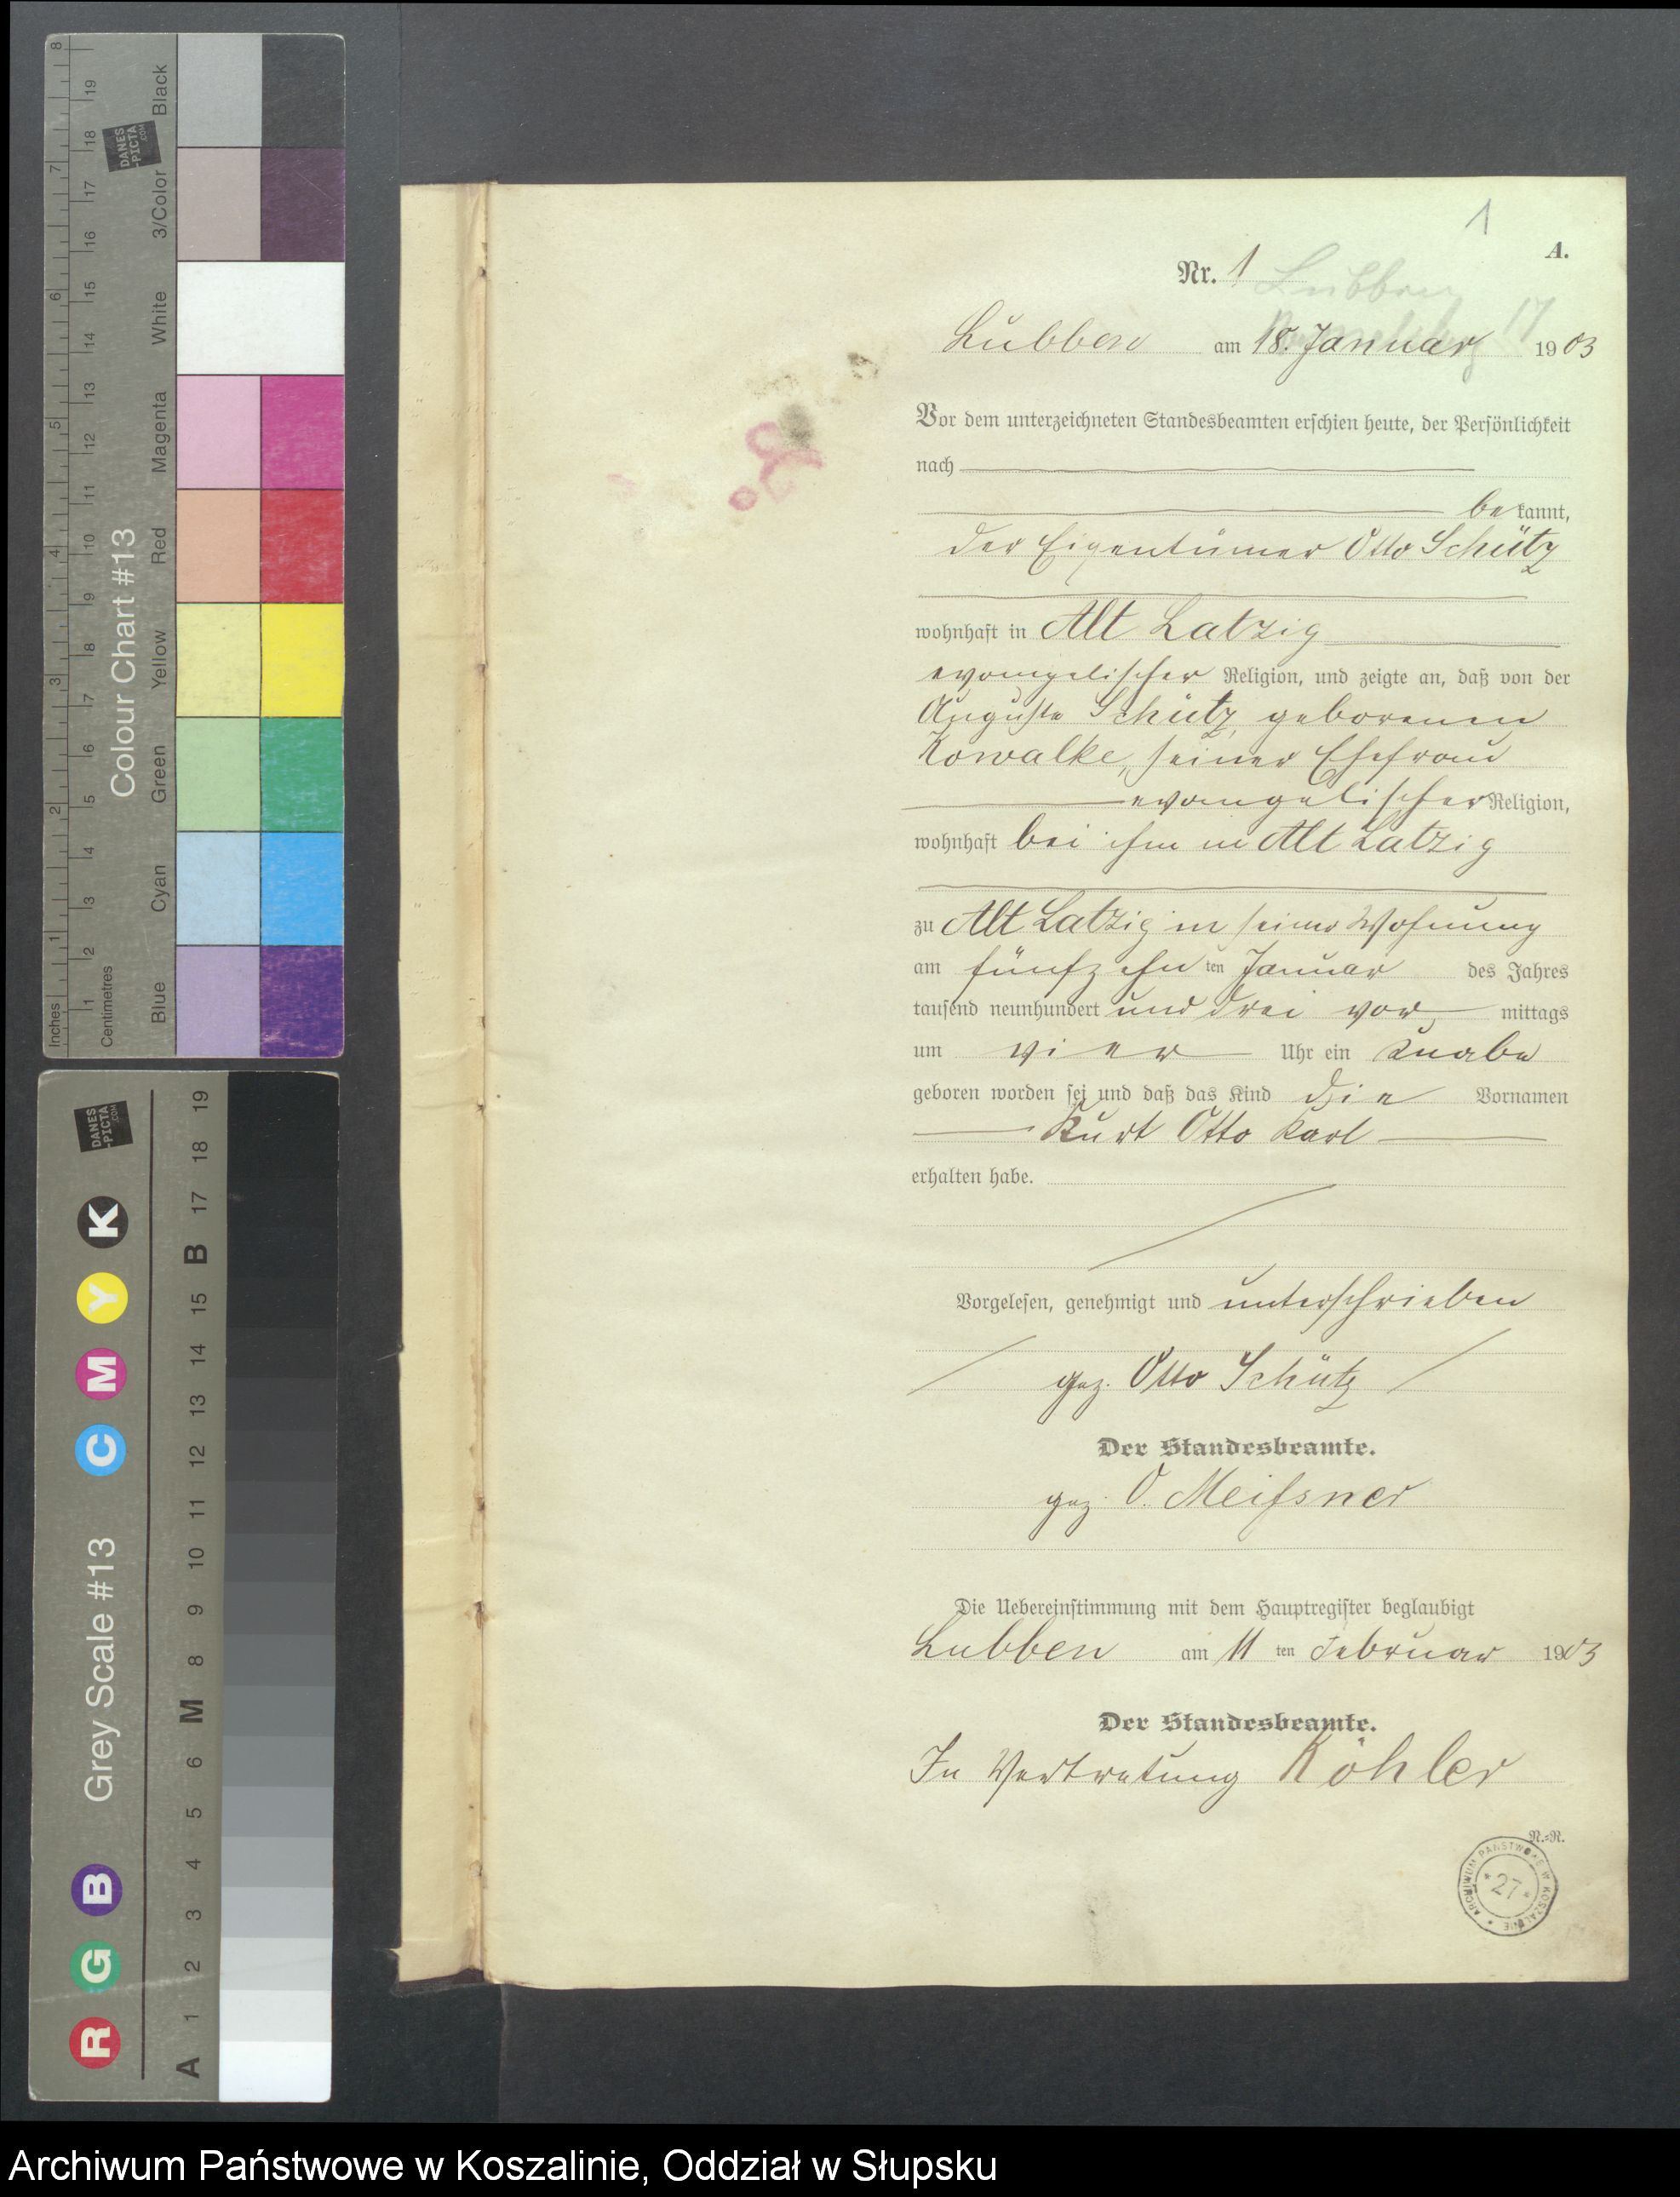 1
A.
Nr. 1 Lubben
17
Lübben am 18. Januar 1903
Vor dem unterzeichneten Standesbeamten erschien heute, der Persönlichkeit
nach
bekannt,
der Eigentümer Otto Schütz
wohnhaft in Alt Latzig
evangelischer Religion, und zeigte an, daß von der
Auguste Schütz, geborenen
Kowalke, seiner Ehefrau
evangelischer Religion,
wohnhaft bei ihm in Alt Latzig
zu Alt Latzig in seiner Wohnung
am fünfzehn ten Januar des Jahres
tausend neunhundert und drei vor mittags
um vier Uhr ein Knabe
geboren worden sei und daß das Kind die Vornamen
Kurt Otto Karl
erhalten habe.
Vorgelesen, genehmigt und unterschrieben
gez. Otto Schütz
Der Standesbeamte.
gez. O. Meißner
Die Uebereinstimmung mit dem Hauptregister beglaubigt
Lubben am 11 ten Februar 1903
Der Standesbeamte.
In Vertretung Köhler
N.=N.
ARCHIWUM PAŃSTWOWE W KOSZALINIE
* 27 *
Colour Chart #13
Inches
1 2 3 4 5 6 7 8
Centimetres
1 2 3 4 5 6 7 8 9 10 11 12 13 14 15 16 17 18 19
Blue Cyan Green Yellow Red Magenta White 3/Color Black
DANES
-PICTA
.COM
Grey Scale #13
R G B C M Y K
A 1 2 3 4 5 6 M 8 9 10 11 12 13 14 15 B 17 18 19
DANES
-PICTA
.COM
Archiwum Państwowe w Koszalinie, Oddział w Słupsku